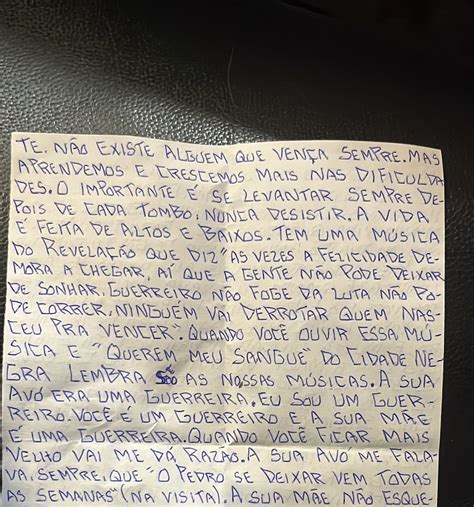 TE. NÃO EXISTE ALGUEM QUE VENÇA SEMPRE. MAS
APRENDEMOS E CRESCEMOS MAIS NAS DIFICULDA
DES. O IMPORTANTE É SE LEVANTAR SEMPRE DE-
POIS DE CADA TOMBO, NUNCA DESISTIR. A VIDA
É FEITA DE ALTOS E BAIXOS. TEM UMA MÚSICA
DO REVELAÇÃO QUE DIZ "AS VEZES A FELICIDADE DE-
MORA A CHEGAR, AÍ QUE A GENTE NÃO PODE DEIXAR
DE SONHAR, GUERREIRO NÃO FOGE DA LUTA NÃO PO-
DE CORRER, NINGUÉM VAI DERROTAR QUEM NAS-
CEU PRA VENCER". QUANDO VOCÊ OUVIR ESSA MÚ-
SICA E "QUEREM MEU SANGUE" DO CIDADE NE-
GRA LEMBRA AS NOSSAS MÚSICAS. A SUA
AVÓ ERA UMA GUERREIRA. EU SOU UM GUER-
REIRO. VOCÊ É UM GUERREIRO E A SUA MÃE
É UMA GUERREIRA. QUANDO VOCÊ FICAR MAIS
VELHO VAI ME DÁ RAZÃO. A SUA AVO ME FALA-
VA, SEMPRE, QUE "O PEDRO SE DEIXAR VEM TODAS
AS SEMANAS" (NA VISITA). A SUA MÃE NÃO ESQUE-